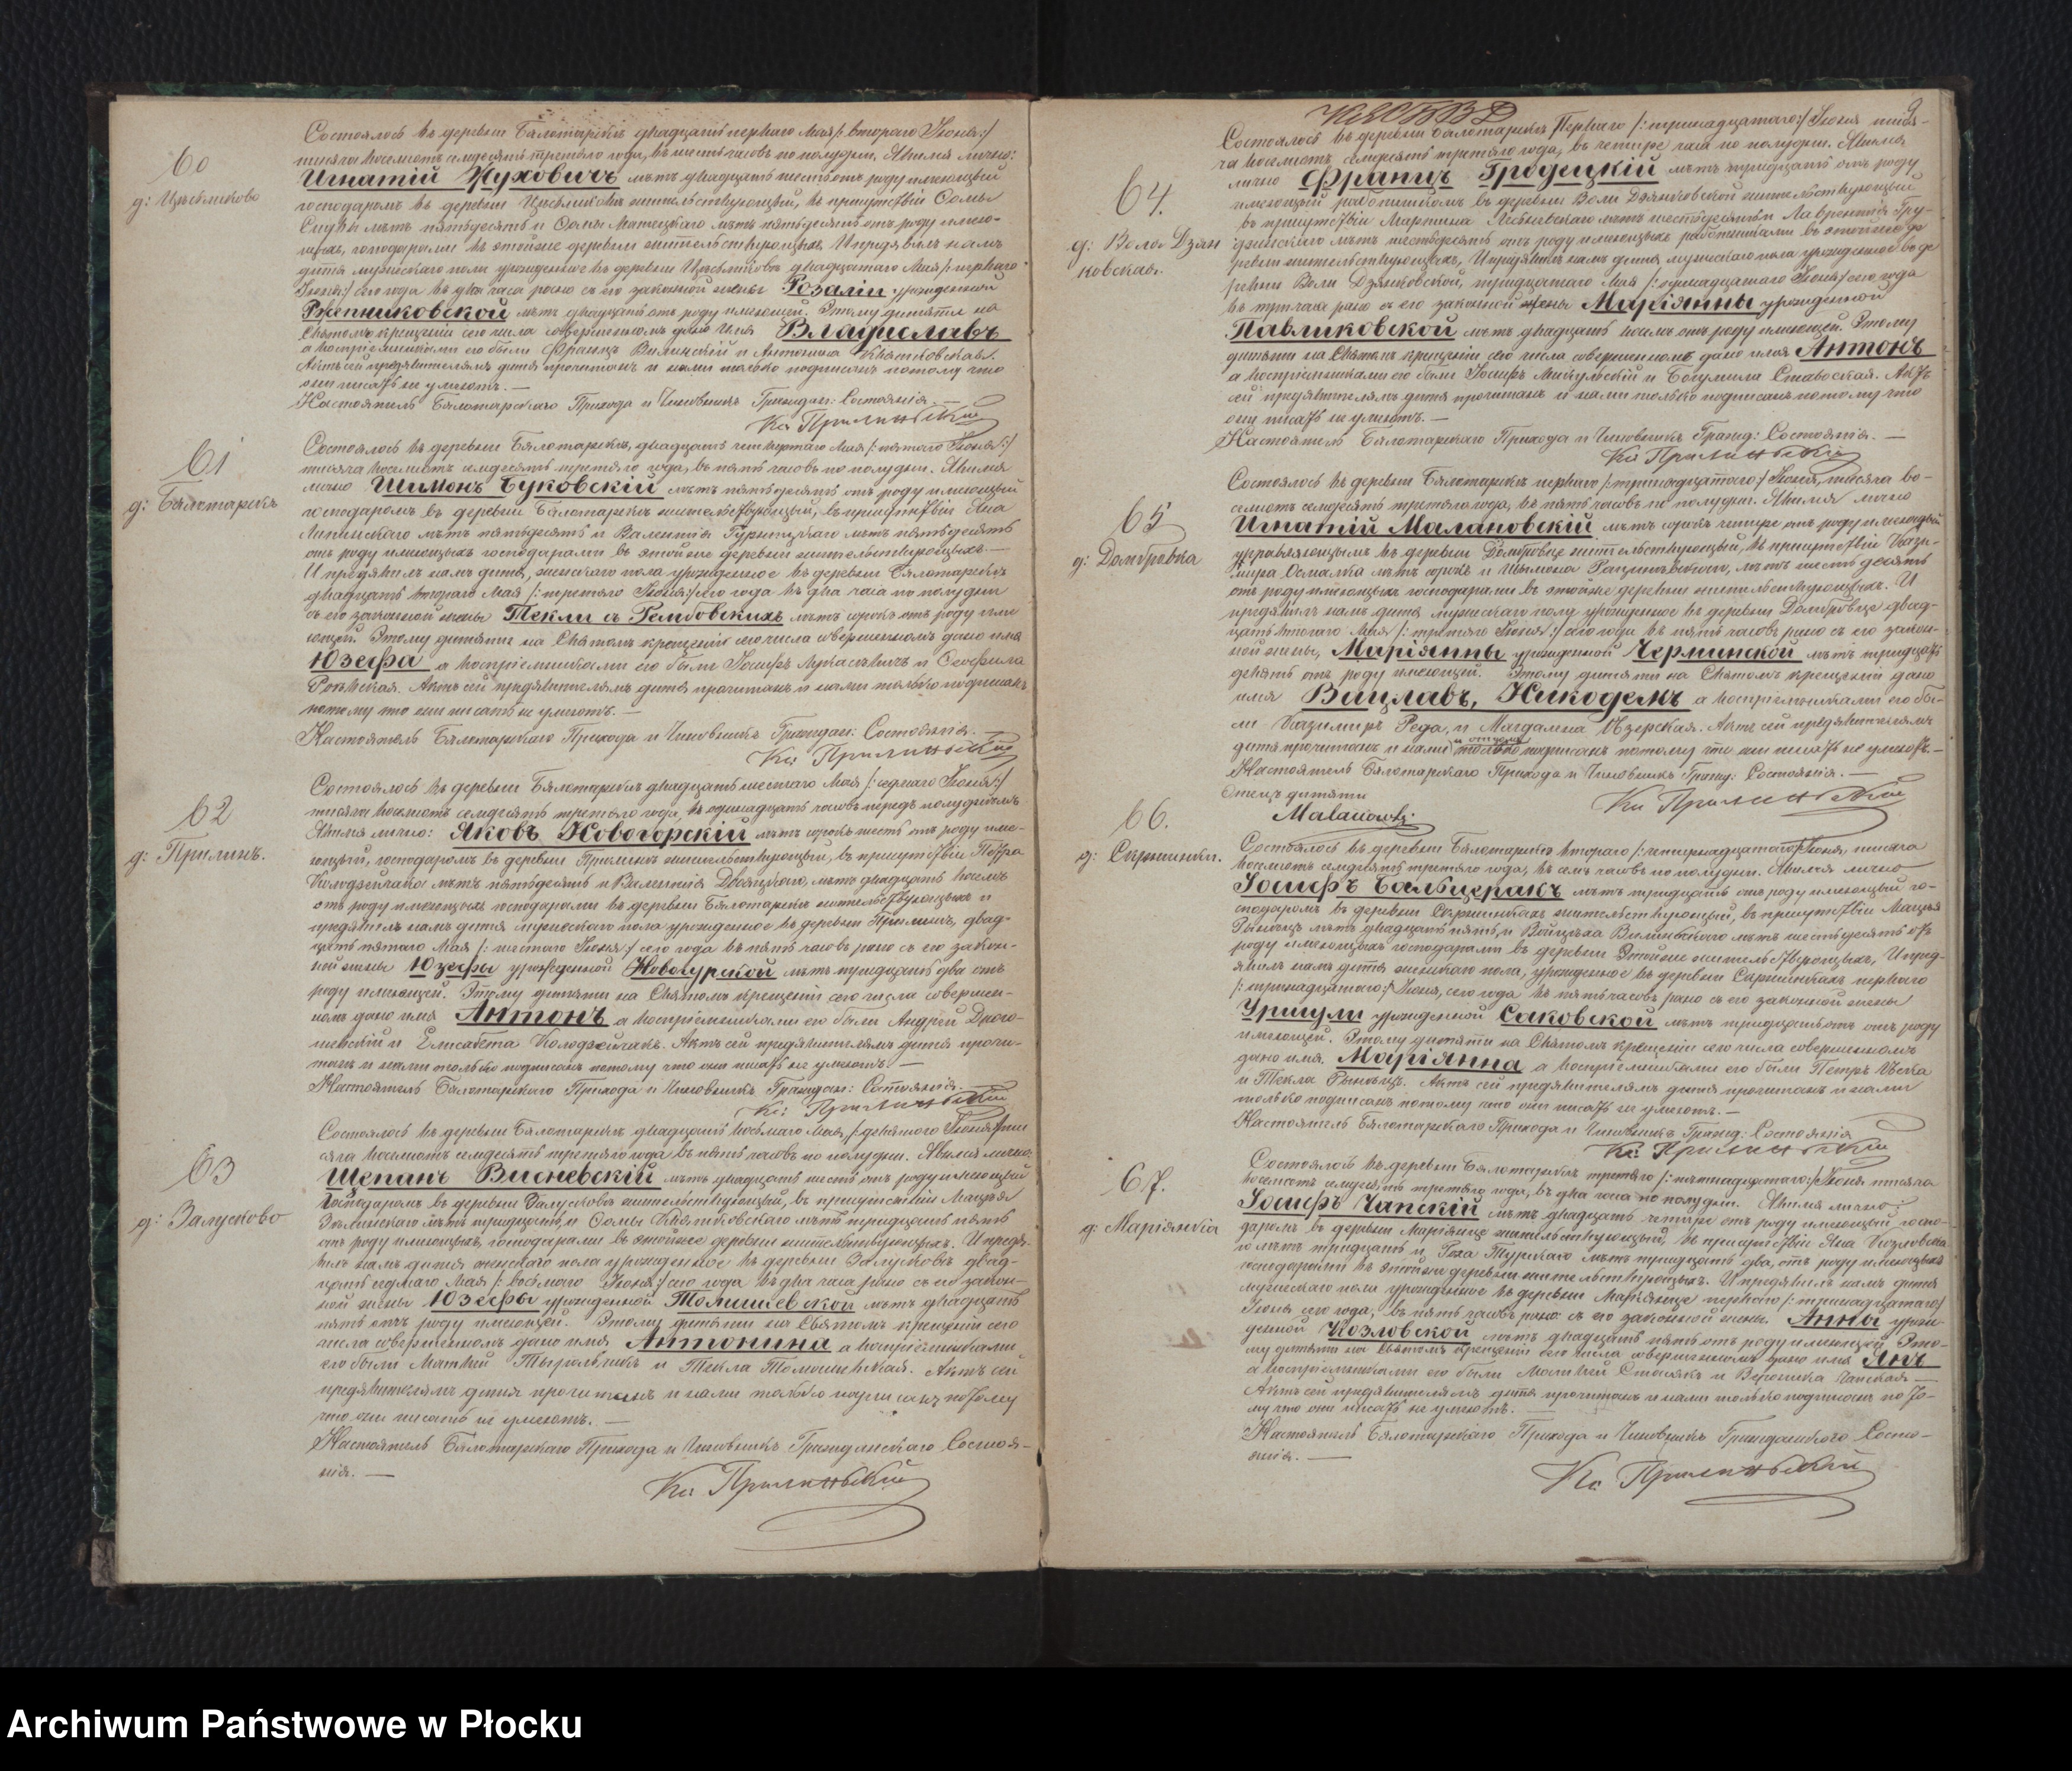 60
д: Цесликово
Состоялось въ деревни Бялотарскъ двадцать перваго Мая /: втораго Іюня:/
тысяча восемьсотъ семдесятъ третяго года, въ шесть часовъ по полудни. Явился лично:
Игнатій Жуховичъ лѣтъ двадцать шесть отъ роду имеющый
господаромъ въ деревни жительствующый, въ присутствіи
лѣтъ пятьдесятъ и лѣтъ пятьдесятъ отъ роду имею-
щыхъ, господарами въ этойже деревни жительствующыхъ. И предявилъ намъ
дитя мужескаго пола урожденное въ деревни двадцатаго Мая /: перваго
Іюня:/ сего года въ два часа рано съ его законной жены Розаліи урожденной
Ржепниковской лѣтъ двадцать отъ роду имеющей. Этому дитяти на
Святомъ крещеніи сего числа совершенномъ дано имя Владиславъ
а воспріемниками его были Францъ Вилинскій и Антонина Квятковская.
Актъ сей предявителямъ дитя прочитанъ и нами только подписанъ потому что
они писать не умеютъ. —
Настоятель Бялотарскаго Прихода и Чиновникъ Граждан: Состоянія. —
61
д: Бялотарскъ
Состоялось въ деревни Бялотарскъ, двадцать четвертаго Мая /: пятаго Іюня:/
тысяча восемьсотъ семдесятъ третяго года, въ пять часовъ по полудни. Явился
лично Шимонъ Буковскій лѣтъ пятьдесятъ отъ роду имеющый
господаромъ въ деревни Бялотарскъ жительствующый, въ присутствіи Яна
Липинскаго лѣтъ пятьдесятъ и Валентія лѣтъ пятьдесятъ
отъ роду имеющыхъ господарами въ этойже деревни жительствующыхъ. —
И предявилъ намъ дитя, женскаго пола урожденное въ деревни Бялотарскъ
двадцать втораго Мая /: третяго Іюня:/ сего года въ два часа по полудни
съ его законной жены Текли съ Гембовскихъ лѣтъ сорокъ отъ роду име
ющей. Этому дитяти на Святомъ крещеніи сего числа совершенномъ дано имя
Юзефа а воспріемниками его былъ Іосифъ Лукасевичъ и Теофила
Актъ сей предявителямъ дитя прочитанъ и нами только подписанъ
потому что они писать не умеютъ. —
Настоятель Бялотарскаго Прихода и Чиновникъ Граждан: Состоянія. —
62
д: Прилинъ.
Состоялось въ деревни Бялотарскъ двадцать шестаго Мая /: седмаго Іюня:/
тысяча восемьсотъ семдесятъ третяго года, въ одинадцать часовъ передъ полуднемъ
Явился лично: Яковъ Новогорскій лѣтъ сорокъ шесть отъ роду име-
ющый, господаромъ въ деревни Прилинъ жительствующый, въ присутствіи Петра
Колодзейчака лѣтъ пятьдесятъ и Валентія лѣтъ двадцать восемъ
отъ роду имеющыхъ господарами въ деревни Бялотарскъ жительствующыхъ и
предявилъ намъ дитя мужескаго пола урожденное въ деревни Прилинъ, двад-
цать пятаго Мая /: шестаго Іюня:/ сего года въ пять часовъ рано съ его закон-
ной жены Юзефы урожденной Новогурской лѣтъ тридцать два отъ
роду имеющей. Этому дитяти на Святомъ крещеніи сего числа совершен-
номъ дано имя Антонъ а воспріемниками его были Андрей Дного-
шевскій и Елисабета Колодзейчакъ. Актъ сей предявителямъ дитя прочи-
танъ и нами только подписанъ потому что они писать не умеютъ. —
Настоятель Бялотарскаго Прихода и Чиновникъ Граждан: Состоянія. —
63
д: Залусково
Состоялось въ деревни Бялотарскъ двадцать восьмаго Мая /: девятого Іюня:/ ты
сяча восемьсотъ семдесятъ третяго года въ пять часовъ по полудни. Явился лично:
Щепанъ Висневскій лѣтъ двадцать шесть отъ роду имеющый
господаромъ въ деревни Залусковъ жительствующый, въ присутствіи Мацѣя
лѣтъ тридцать и Квятковскаго лѣтъ тридцать пять
отъ роду имеющыхъ, господарами въ этойже деревни жительствующыхъ. И предя-
вилъ намъ дитя женскаго пола урожденное въ деревни Залусковъ двад-
цать седмаго Мая /: восьмаго Іюня:/ сего года въ два часа рано съ его закон-
ной жены Юзефы урожденной Томашевской лѣтъ двадцать
пять отъ роду имеющей. Этому дитяти на Святомъ крещеніи сего
числа совершенномъ дано имя Антонина а воспріемниками
его были Матвей и Текла Томашевская. Актъ сей
предявителямъ дитя прочитанъ и нами только подписанъ потому
что они писать не умеютъ. —
Настоятель Бялотарскаго Прихода и Чиновникъ Гражданскаго Состоя-
нія. —
Кс: Прилиньскій
9
64.
д: Воля Дзян
ковская.
Состоялось въ деревни Бялотарскъ Перваго /: тринадцатаго:/ Іюня тыся-
ча восемьсотъ семдесятъ третяго года, въ четыре часа по полудни. Явился
лично Францъ Гродецкій лѣтъ тридцать отъ роду
имеющый работникомъ въ деревни Воли Дзянковской жительствующый
въ присутствіи Мартина лѣтъ шестьдесятъ и Лаврентія Гру-
дзинскаго лѣтъ шестьдесятъ отъ роду имеющыхъ работниками въ этойже де
ревни жительствующыхъ, И предявилъ намъ дитя мужескаго пола урожденное въ де
ревни Воли Дзянковской, тридцатаго Мая /: одинадцатаго Іюня:/ сего года
въ три часа рано съ его законной жены Маріянны урожденной
Павликовской лѣтъ двадцать восемъ отъ роду имеющей. Этому
дитяти на Святомъ крещеніи сего числа совершенномъ дано имя Антонъ
а воспріемниками его были Іосифъ Микульскій и Богумила Ставоская. Актъ
сей предявителямъ дитя прочитанъ и нами только подписанъ потому что
они писать не умеютъ. —
Настоятель Бялотарскаго Прихода и Чиновникъ Гражд: Состоянія. —
65
д: Домбровка
Состоялось въ деревни Бялотарскъ перваго /: тринадцатаго:/ Іюня, тысяча во-
семьсотъ семдесятъ третяго года, въ пять часовъ по полудни. Явился лично
Игнатій Малановскій лѣтъ сорокъ четыре отъ роду имеющый
управляющымъ въ деревни Домбровце жительствующый, въ присутствіи Кази-
мира Осмалка лѣтъ сорокъ и Шымона лѣтъ шестьдесятъ
отъ роду имеющыхъ господарами въ этойже деревни жительствующыхъ. И
предявилъ намъ дитя мужескаго полу урожденное въ деревни Домбровце двад-
цать втораго Мая /: третяго Іюня:/ сего года въ пять часовъ рано съ его закон-
ной жены, Маріянны урожденной Черминской лѣтъ тридцать
девять отъ роду имеющей. Этому дитяти на Святомъ крещеніи дано
имя Вацлавъ, Никодемъ а воспріемниками его бы-
ли Казимиръ Реда, и Магдалина Езерская. Актъ сей предявителямъ
дитя прочитанъ и нами и отцемъ только подписанъ потому что они писать не умеютъ. —
Настоятель Бялотарскаго Прихода и Чиновникъ Гражд: Состоянія. —
Отецъ дитяти
Malanowski
66.
д: Скржинки.
Состоялось въ деревни Бялотарскъ втораго /: четырнадцатаго:/ Іюня тысяча
восемьсотъ семдесятъ третяго года, въ семъ часовъ по полудни. Явился лично
Іосифъ Бальцеракъ лѣтъ тридцать отъ роду имеющый го-
сподаромъ въ деревни Скржинкахъ жительствующый, въ присутствіи Мацѣя
лѣтъ двадцать пять, и Войцѣха Вилинскаго лѣтъ шестьдесятъ отъ
роду имеющыхъ господарами въ деревни этойже жительствующыхъ, И пред-
явилъ намъ дитя женскаго пола, урожденное въ деревни Скржинкахъ перваго
/: тринадцатаго:/ Іюня, сего года въ пять часовъ рано съ его законной жены
Уршули урожденной Саковской лѣтъ тридцать отъ роду
имеющей. Этому дитяти на Святомъ крещеніи сего числа совершенномъ
дано имя. Маріянна а воспріемниками его были Петръ
и Текла Актъ сей предявителямъ дитя прочитанъ и нами
только подписанъ потому что они писать не умеютъ. —
Настоятель Бялотарскаго Прихода и Чиновникъ Гражд: Состоянія
67.
д: Маріянка
Состоялось въ деревни Бялотарскъ третяго /: пятнадцатаго:/ Іюня тысяча
восемьсотъ семдесятъ третяго года, въ два часа по полудни. Явился лично:
Іосифъ Чапскій лѣтъ двадцать четыре отъ роду имеющый госпо-
даромъ въ деревни Маріянце жительствующый, въ присутствіи Яна Козловска
го лѣтъ тридцать и Роха Турскаго лѣтъ тридцать два, отъ роду имеющыхъ
господарами въ этойже деревни жительствующыхъ. И предявилъ намъ дитя
мужескаго пола урожденное въ деревни Маріянце перваго /: тринадцатаго:/
Іюня сего года, въ пять часовъ рано съ его законной жены Анны урож-
денной Козловской лѣтъ двадцать пять отъ роду имеющей. Это-
му дитяти на Святомъ крещеніи сего числа совершенномъ дано имя Янъ
а воспріемниками его были Матвей Стасякъ и Вероника Чапская —
Актъ сей предявителямъ дитя прочитанъ и нами только подписанъ пото-
му что они писать не умеютъ. —
Настоятель Бялотарскаго Прихода и Чиновникъ Гражданскаго Состо-
янія. —
Кс: Прилиньскій
Archiwum Państwowe w Płocku